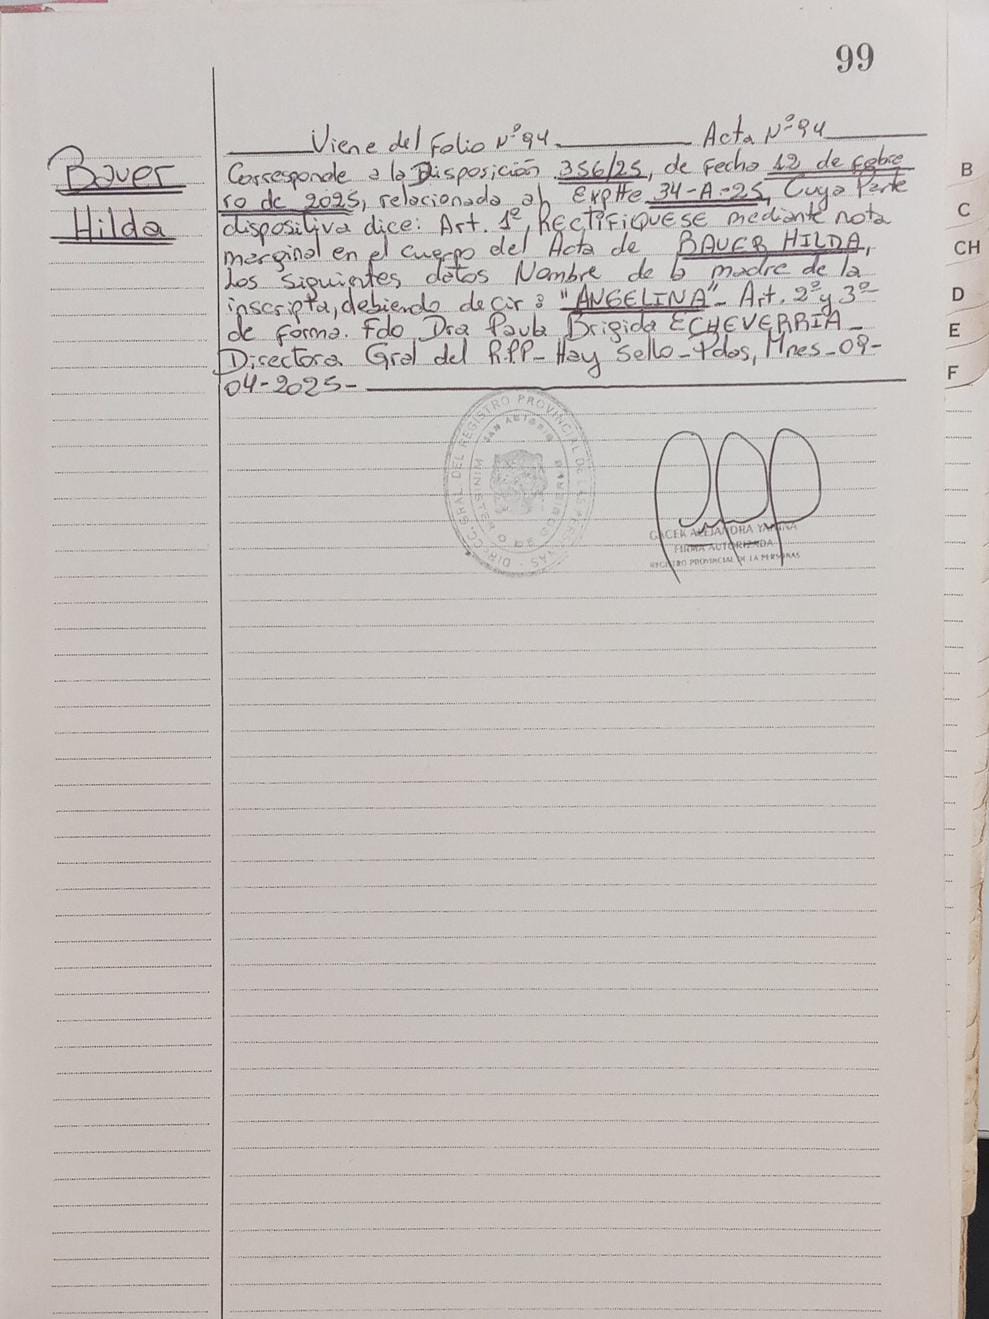 99
Viene del Folio Nº 94. Acta Nº 94
Bauer
Hilda
Corresponde a la Disposición 356/25, de Fecha 12 de febre
ro de 2025, relacionada al Exptte 34-A-25, Cuya Parte
dispositiva dice: Art. 1º, RECTIFIQUESE mediante nota
marginal en el cuerpo del Acta de BAUER HILDA,
Los siguientes datos Nombre de la madre de la
inscripta, debiendo decir: "ANGELINA" - Art. 2º y 3º -
de forma. Fdo Dra Paula Brigida ECHEVERRIA -
Directora Gral del R.P.P - Hay Sello - Pdas, Mnes - 09 -
04 - 2025 -
DIRECC. GRAL DEL REGISTRO PROVINCIAL DE LAS PERSONAS
SAN ANTONIO
MINISTER
GACEK ALEJANDRA
FIRMA AUTORIZADA
REGISTRO PROVINCIAL DE LA PERSONAS
B
C
CH
D
E
F